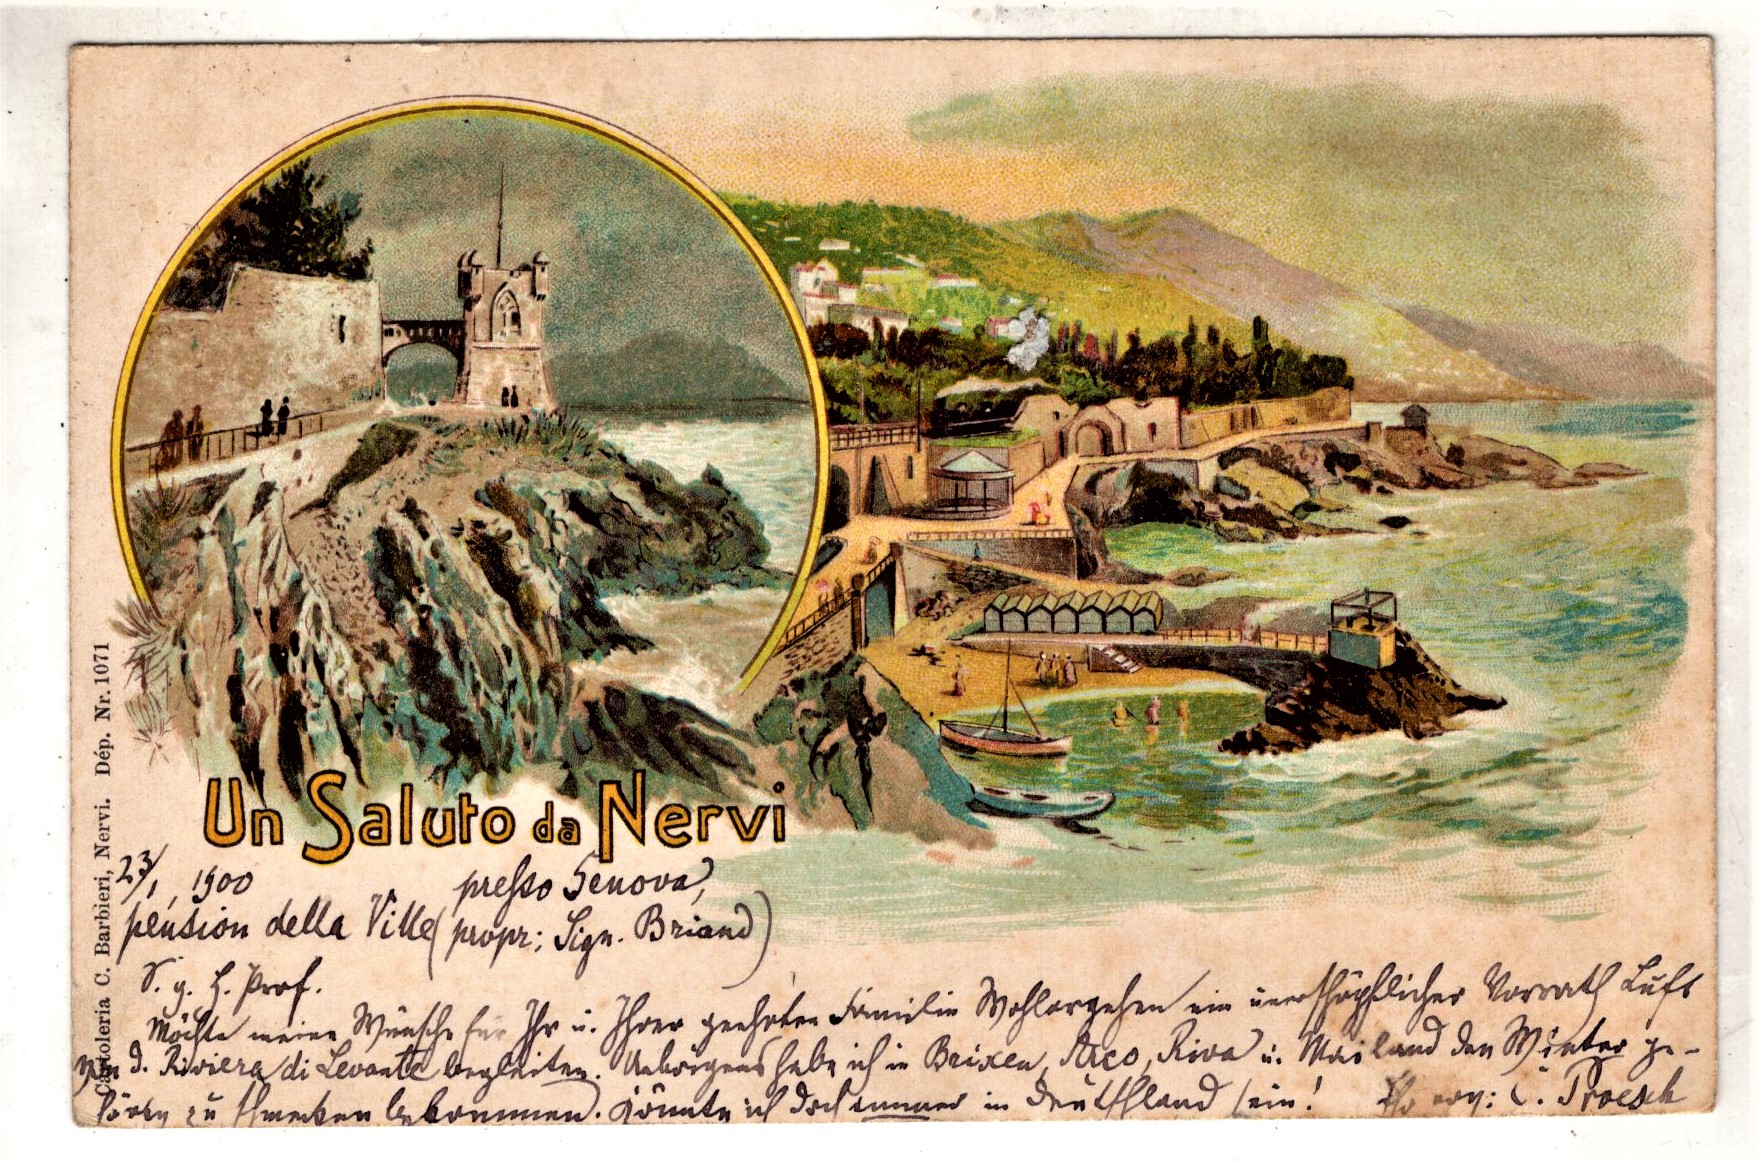 Un Saluto da Nervi
Cartoleria C. Barbieri, Nervi. Dép. Nr. 1071
23/1, 1900 presso Genova,
pension della Ville (propr: Sign. Briand)
S. g. H. Prof.
Möchte meine Wünsche für Ihr u. Ihrer geehrten Familie Wohlergehen ein unerschöpflicher Vorrath Luft
von d. Riviera di Levante begleiten. Uebrigens habe ich in Brixen, Arco, Riva u. Mailand den Winter ge-
hörig zu schmecken bekommen. Könnte ich doch immer in Deutschland sein! Ihr erg: C. Proesch